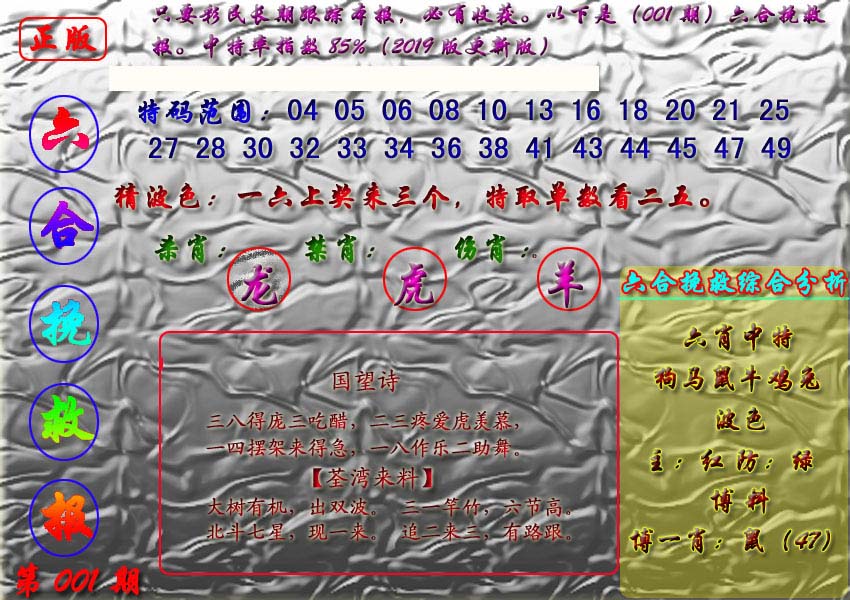 正版
只要彩民长期跟踪本报，必有收获。以下是（001期）六合挽救
报。中特率指数85%（2019版更新版）
特码范围：04 05 06 08 10 13 16 18 20 21 25
27 28 30 32 33 34 36 38 41 43 44 45 47 49
猜波色：一六上奖来三个，特取单数看二五。
杀肖：龙 禁肖：虎 伤肖：。羊
六合挽救报
第001期
国望诗
三八得庞三吃醋，二三疼爱虎羡慕，
一四摆架来得急，一八作乐二助舞。
【荃湾来料】
大树有机，出双波。 三一竿竹，六节高。
北斗七星，现一来。 追二来三，有路跟。
六合挽救综合分析
六肖中特
狗马鼠牛鸡兔
波色
主：红防：绿
博料
博一肖：鼠（47）